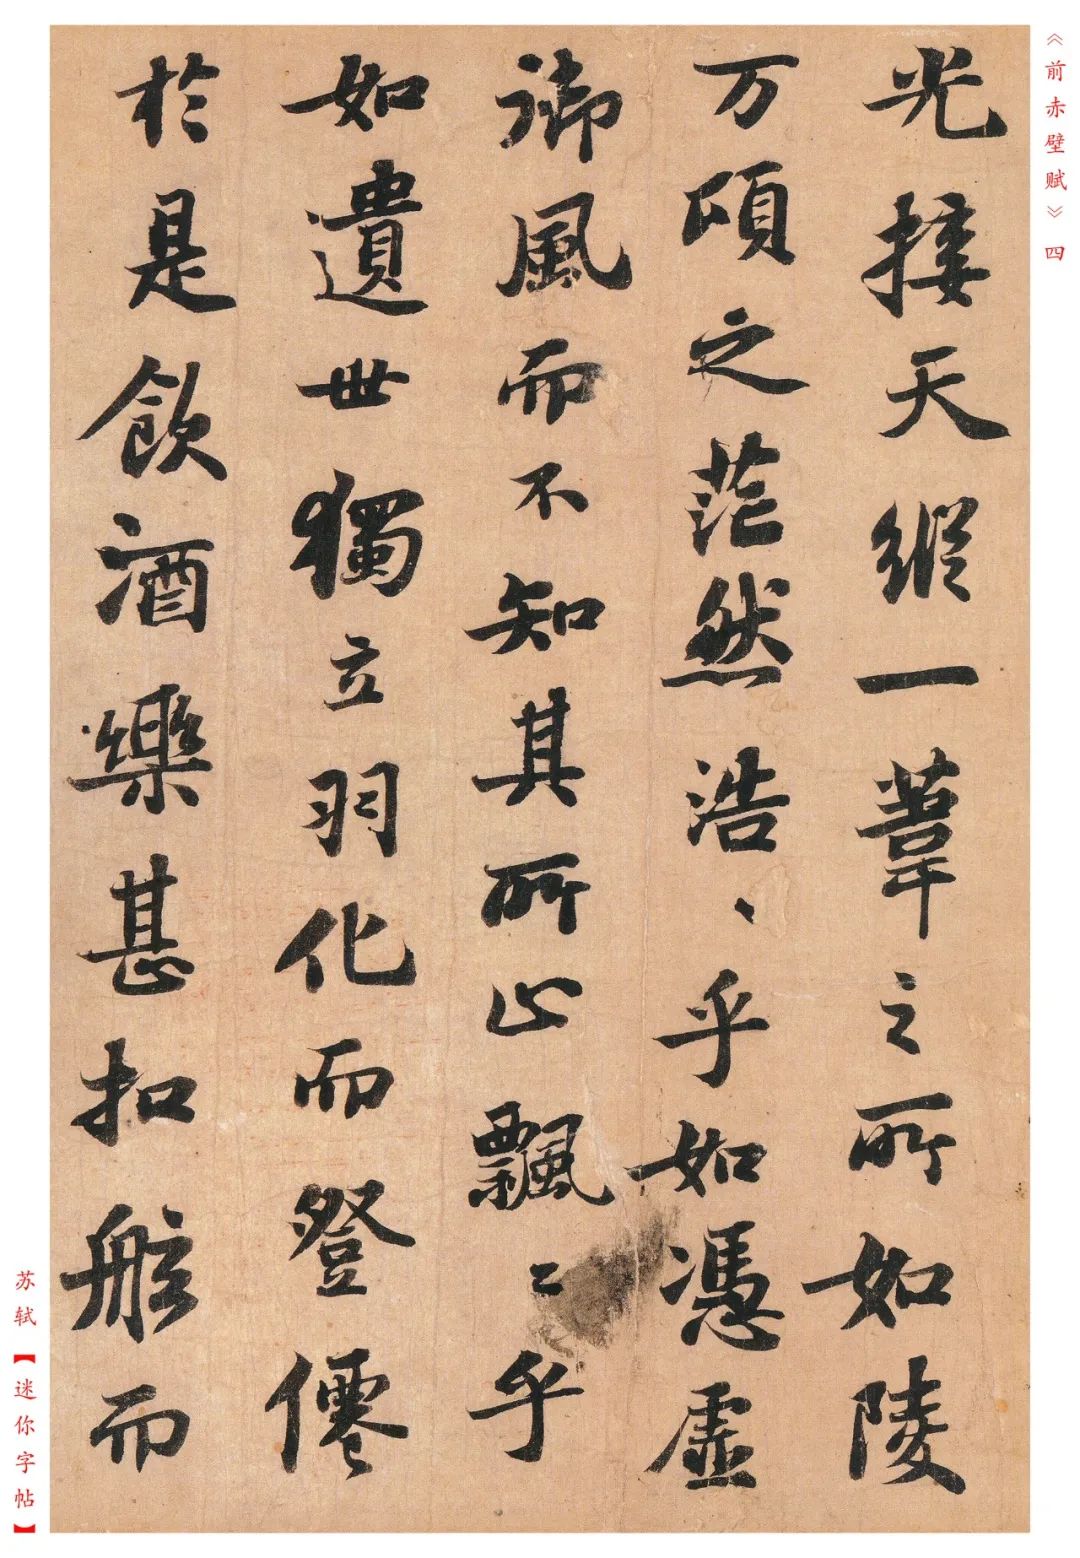 《前赤壁赋》四
光接天縱一葦之所如陵
万頃之茫然浩、乎如憑虛
御風而不知其所止飄〻乎
如遺世獨立羽化而登僊
於是飲酒樂甚扣舷而
苏轼【迷你字帖】